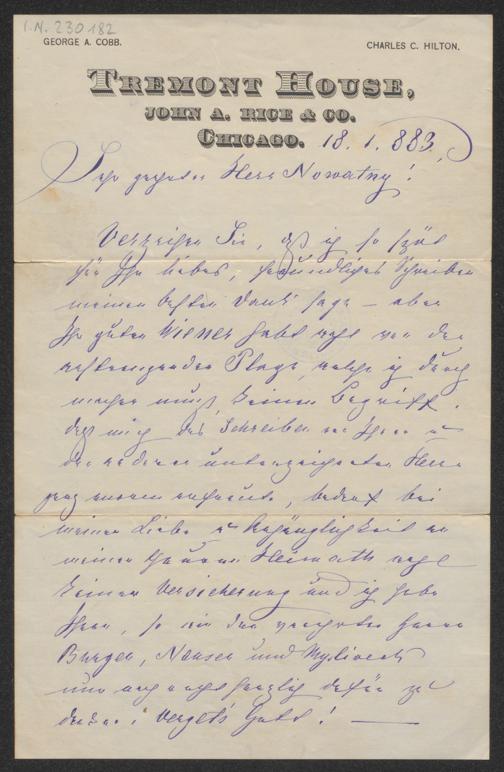 I.N. 230182
GEORGE A. COBB.
CHARLES C. HILTON.
TREMONT HOUSE,
JOHN A. RICE & CO.
CHICAGO. 18. 1. 883.
Sehr geehrter Herr Nowatny!
Verzeihen Sie, daß ich so spät
für Ihr liebes, freundliches Schreiben
meinen besten Dank sage – aber
Ihr guten Wiener habt wohl von der
anstrengenden Plage, welche ich durch
machen muß, keinen Begriff.
daß mich das Schreiben von Ihnen u
den anderen unterzeichneten Herrn
ganz enorm erfreute, bedarf bei
meiner Liebe u Anhänglichkeit an
meine Heimath wohl
keiner Versicherung und ich sage
Ihnen, so wie den verehrten Herrn
Burger, und
nun auch recht herzlich dafür zu
danken: Vergelt's Gott! —